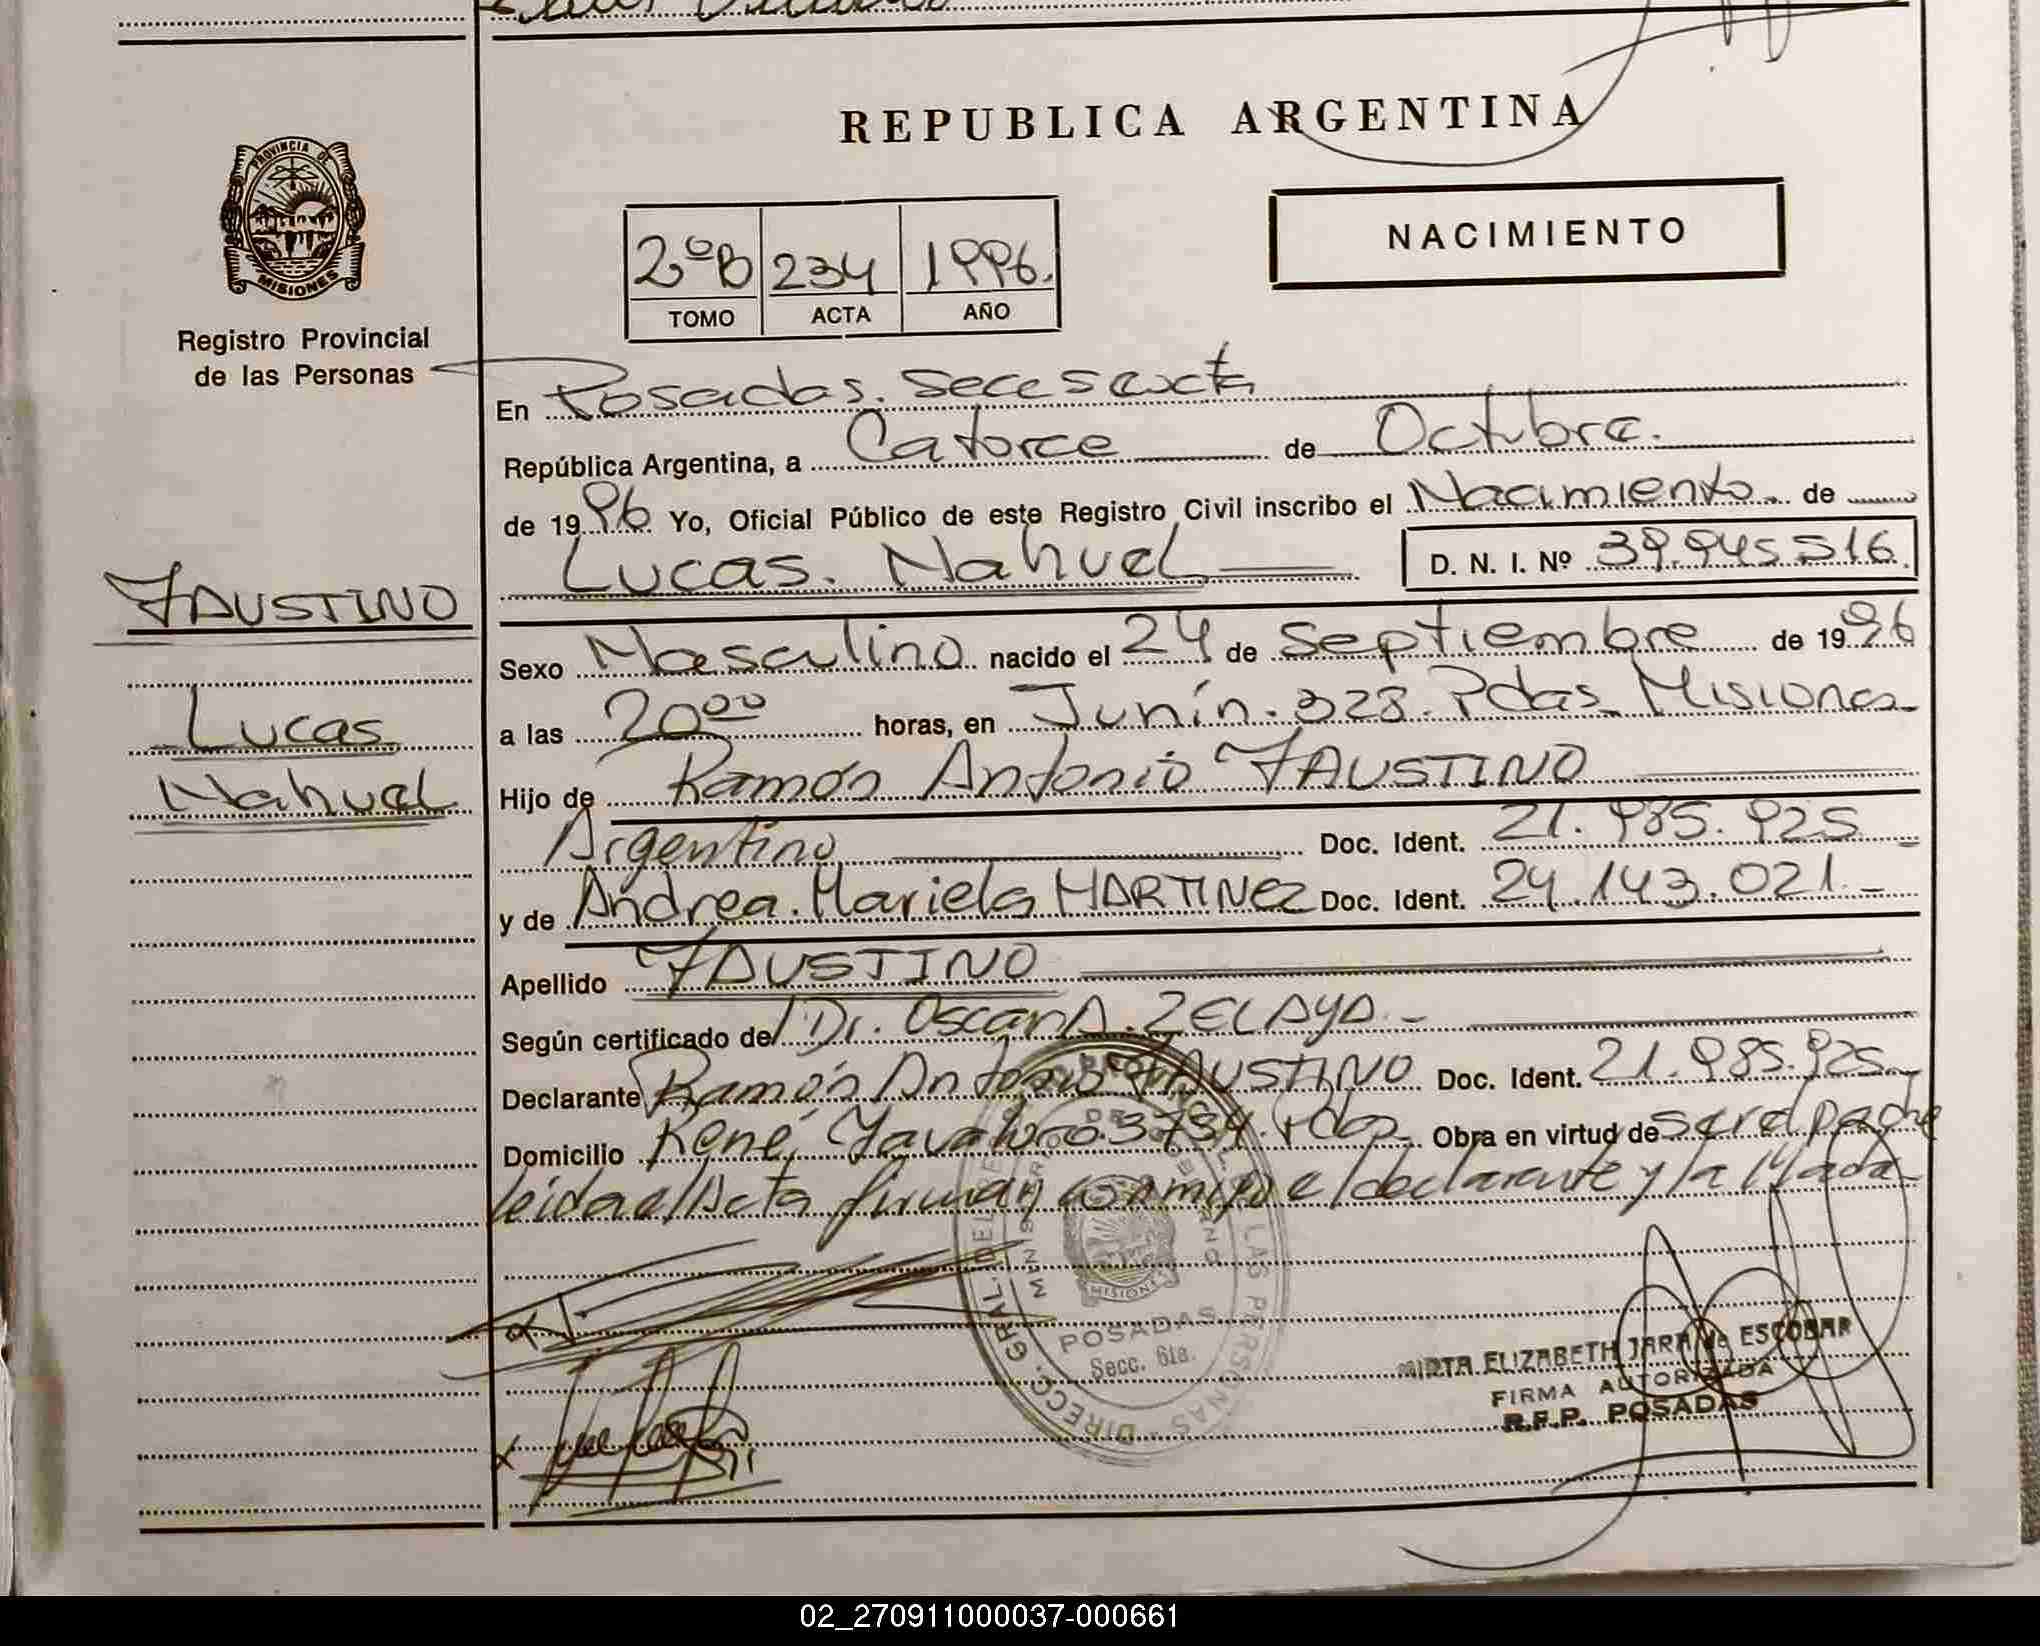 REPUBLICA ARGENTINA
PROVINCIA DE
MISIONES
Registro Provincial
de las Personas
2ºB 234 1996.
TOMO ACTA AÑO
NACIMIENTO
En Posadas. Secc Sexta
República Argentina, a Catorce de Octubre.
de 1996 Yo, Oficial Público de este Registro Civil inscribo el Nacimiento de
Lucas. Nahuel D. N. I. Nº 39.945.516.
FAUSTINO
Lucas
Nahuel
Sexo Masculino nacido el 24 de Septiembre de 1996
a las 20⁰⁰ horas, en Junín. 328. Pdas Misiones
Hijo de Ramón Antonio FAUSTINO
Argentino Doc. Ident. 21.985.925
y de Andrea. Mariela MARTINEZ Doc. Ident. 24.143.021.-
Apellido FAUSTINO
Según certificado de Dr. Oscar A. ZELAYA.-
Declarante Ramón Antonio FAUSTINO Doc. Ident. 21.985.925
Domicilio René 3734. Pdas Obra en virtud de ser el padre
leida el Acta firman conmigo el declarante y la Madre
MISIONES
POSADAS
Secc. 6ta.
MIRTA ELIZABETH JARA de ESCOBAR
FIRMA AUTORIZADA
R.P.P. POSADAS
02_270911000037-000661